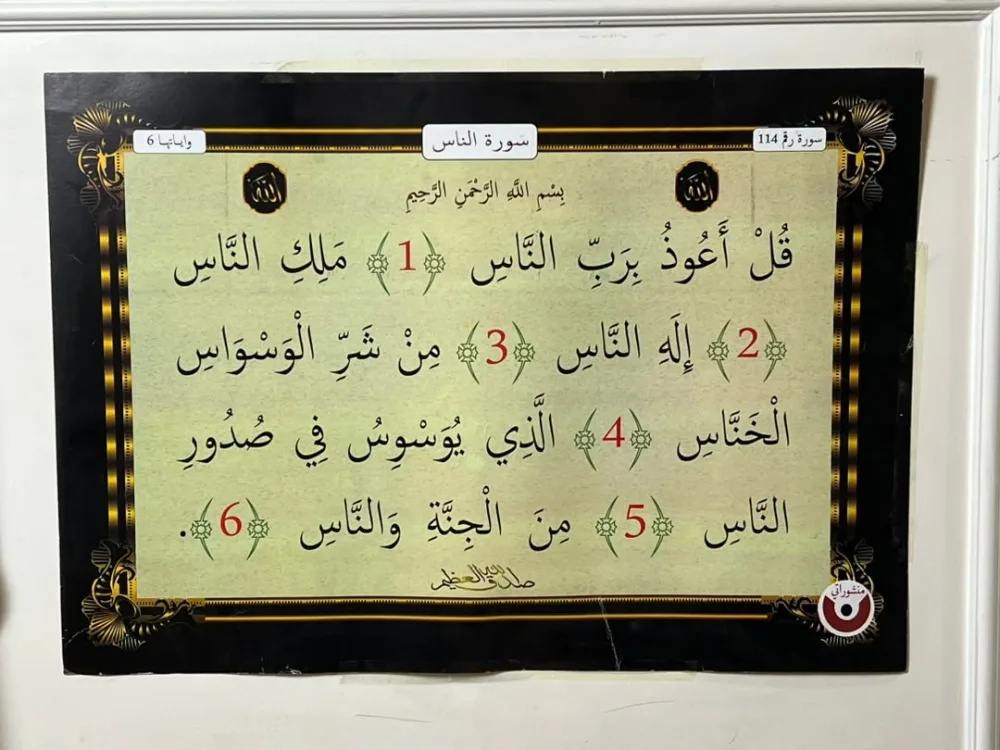 سورة رقم 114
سورة الناس
واياتها 6
الله
الله
بِسْمِ اللَّهِ الرَّحْمَنِ الرَّحِيمِ
قُلْ أَعُوذُ بِرَبِّ النَّاسِ ﴿1﴾ مَلِكِ النَّاسِ
﴿2﴾ إِلَهِ النَّاسِ ﴿3﴾ مِنْ شَرِّ الْوَسْوَاسِ
الْخَنَّاسِ ﴿4﴾ الَّذِي يُوَسْوِسُ فِي صُدُورِ
النَّاسِ ﴿5﴾ مِنَ الْجِنَّةِ وَالنَّاسِ ﴿6﴾.
صدق الله العظيم
منشوراتي